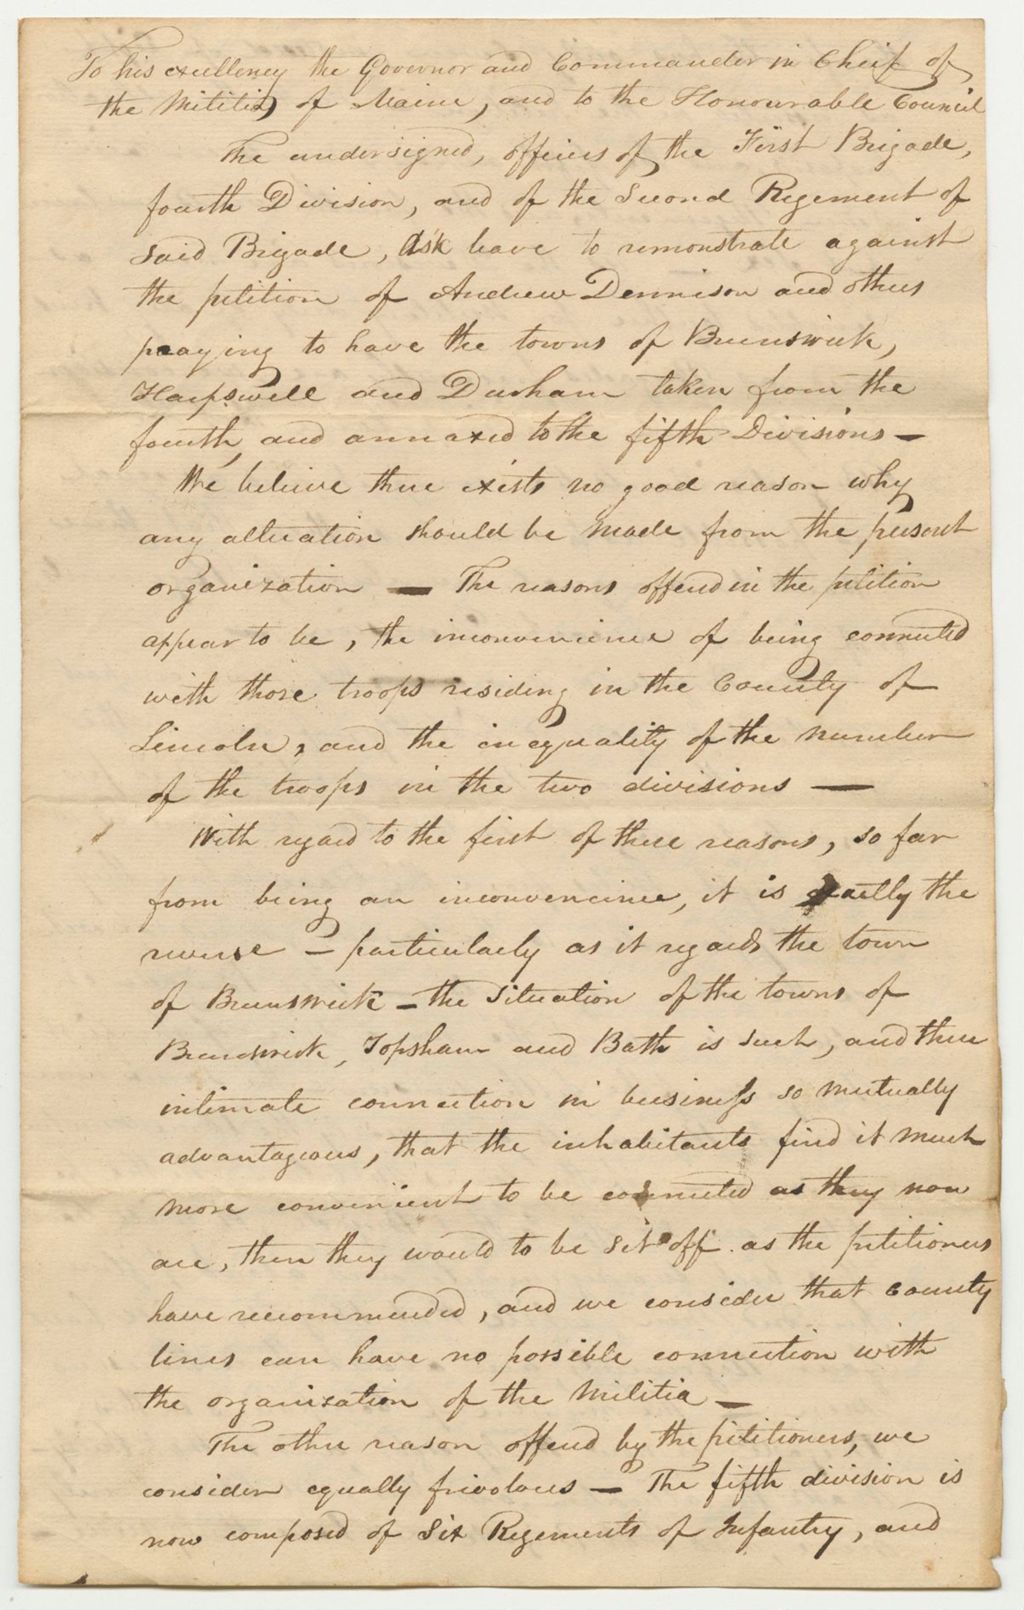 To his excellency the Governor and Commander in Cheif of
the Militia of Maine, and to the Honourable Council
The undersigned, officers of the First Brigade,
fourth Division, and of the Second Regement of
said Brigade, Ask leave to remonstrate against
the petition of Andrew Dennison and others
praying to have the towns of Brunswick,
Harpswell and Durham taken from the
fourth, and annaxed to the fifth Divisions —
We believe there exists no good reason why
any alteration should be made from the present
organization — The reasons offered in the petition
appear to be, the inconvenience of being connected
with those troops residing in the County of
Lincoln, and the inequality of the number
of the troops in the two divisions —
With regard to the first of these reasons, so far
from being an inconvenience, it is exactly the
reverse — particularly as it regards the town
of Brunswick — the situation of the towns of
Brunswick, Topsham and Bath is such, and their
intimate connection in business so mutually
advantageous, that the inhabitants find it much
more convenient to be connected as they now
are, then they would to be set off as the petitioners
have recommended, and we consider that County
lines can have no possible connection with
the organization of the Militia —
The other reason offered by the petitioners, we
consider equally frivolous — The fifth division is
now composed of Six Regements of Infantry, and